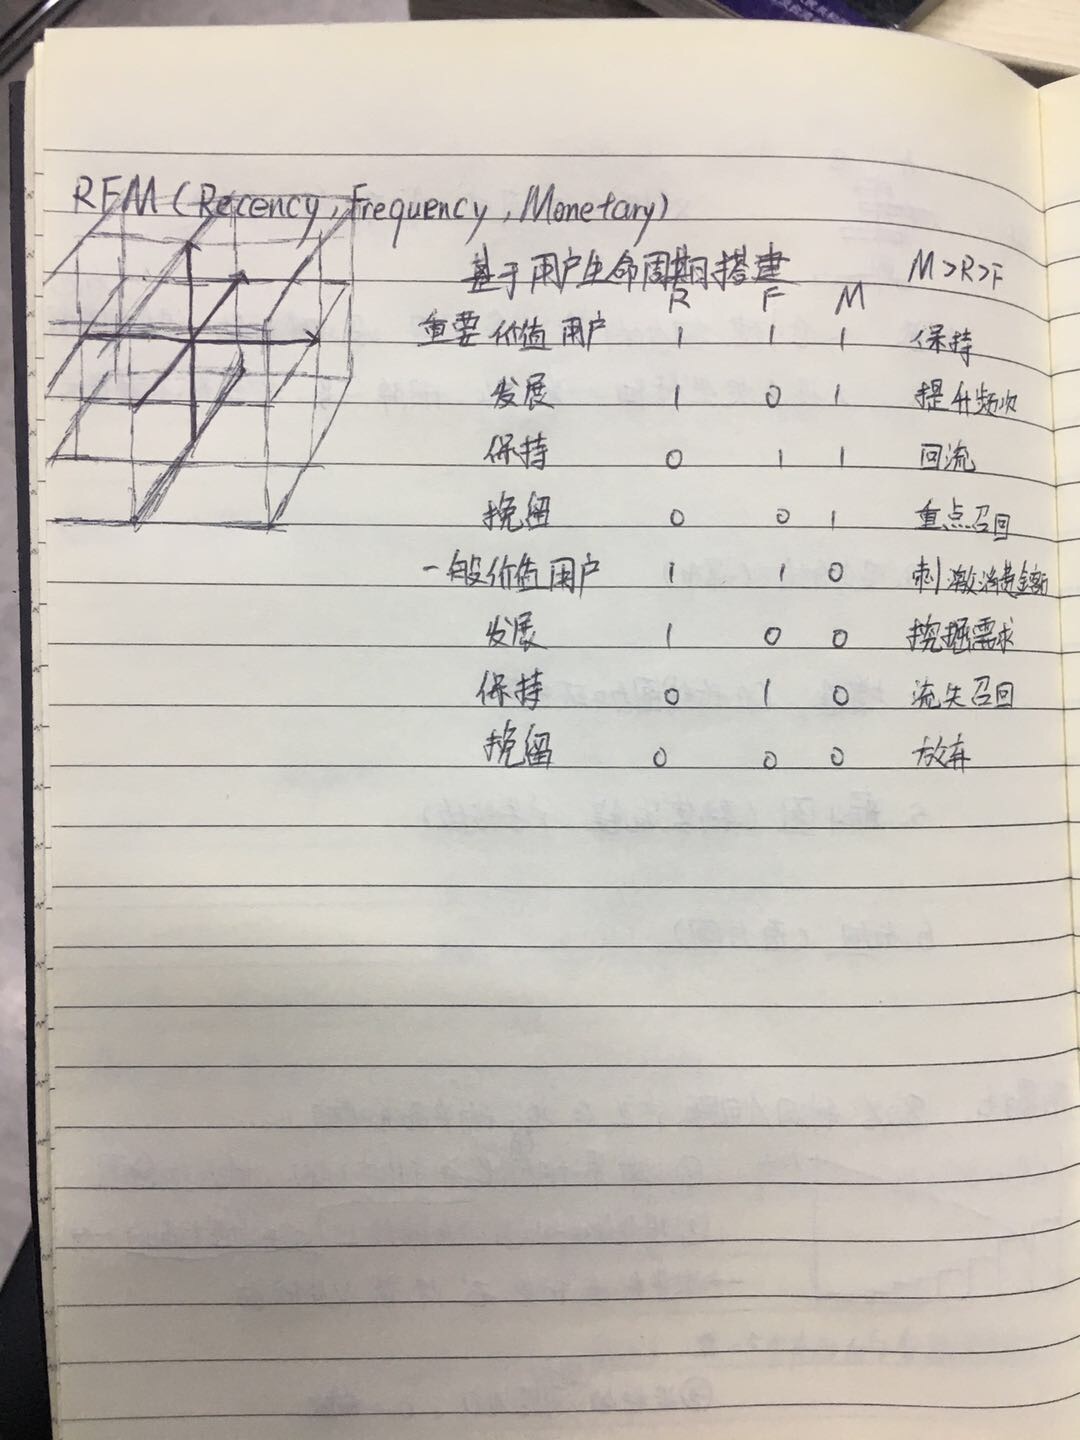 RFM (Recency, Frequency, Monetary)
基于用户生命周期搭建 M>R>F
R F M
重要价值用户 1 1 1 保持
发展 1 0 1 提升频次
保持 0 1 1 回流
挽留 0 0 1 重点召回
一般价值用户 1 1 0 刺激消费金额
发展 1 0 0 挖掘需求
保持 0 1 0 流失召回
挽留 0 0 0 放弃